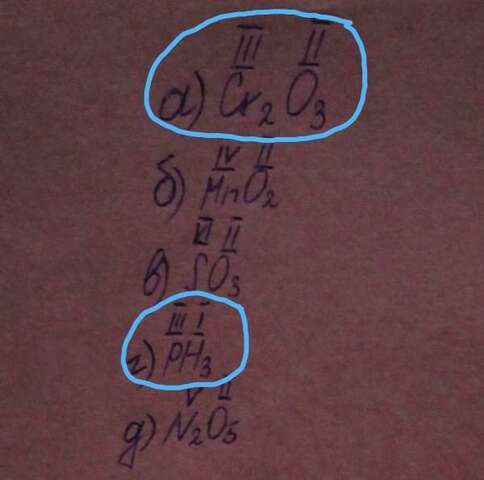 III II
а) Cr₂ O₃
IV II
б) MnO₂
VI II
в) SO₃
III I
г) PH₃
V II
д) N₂O₅